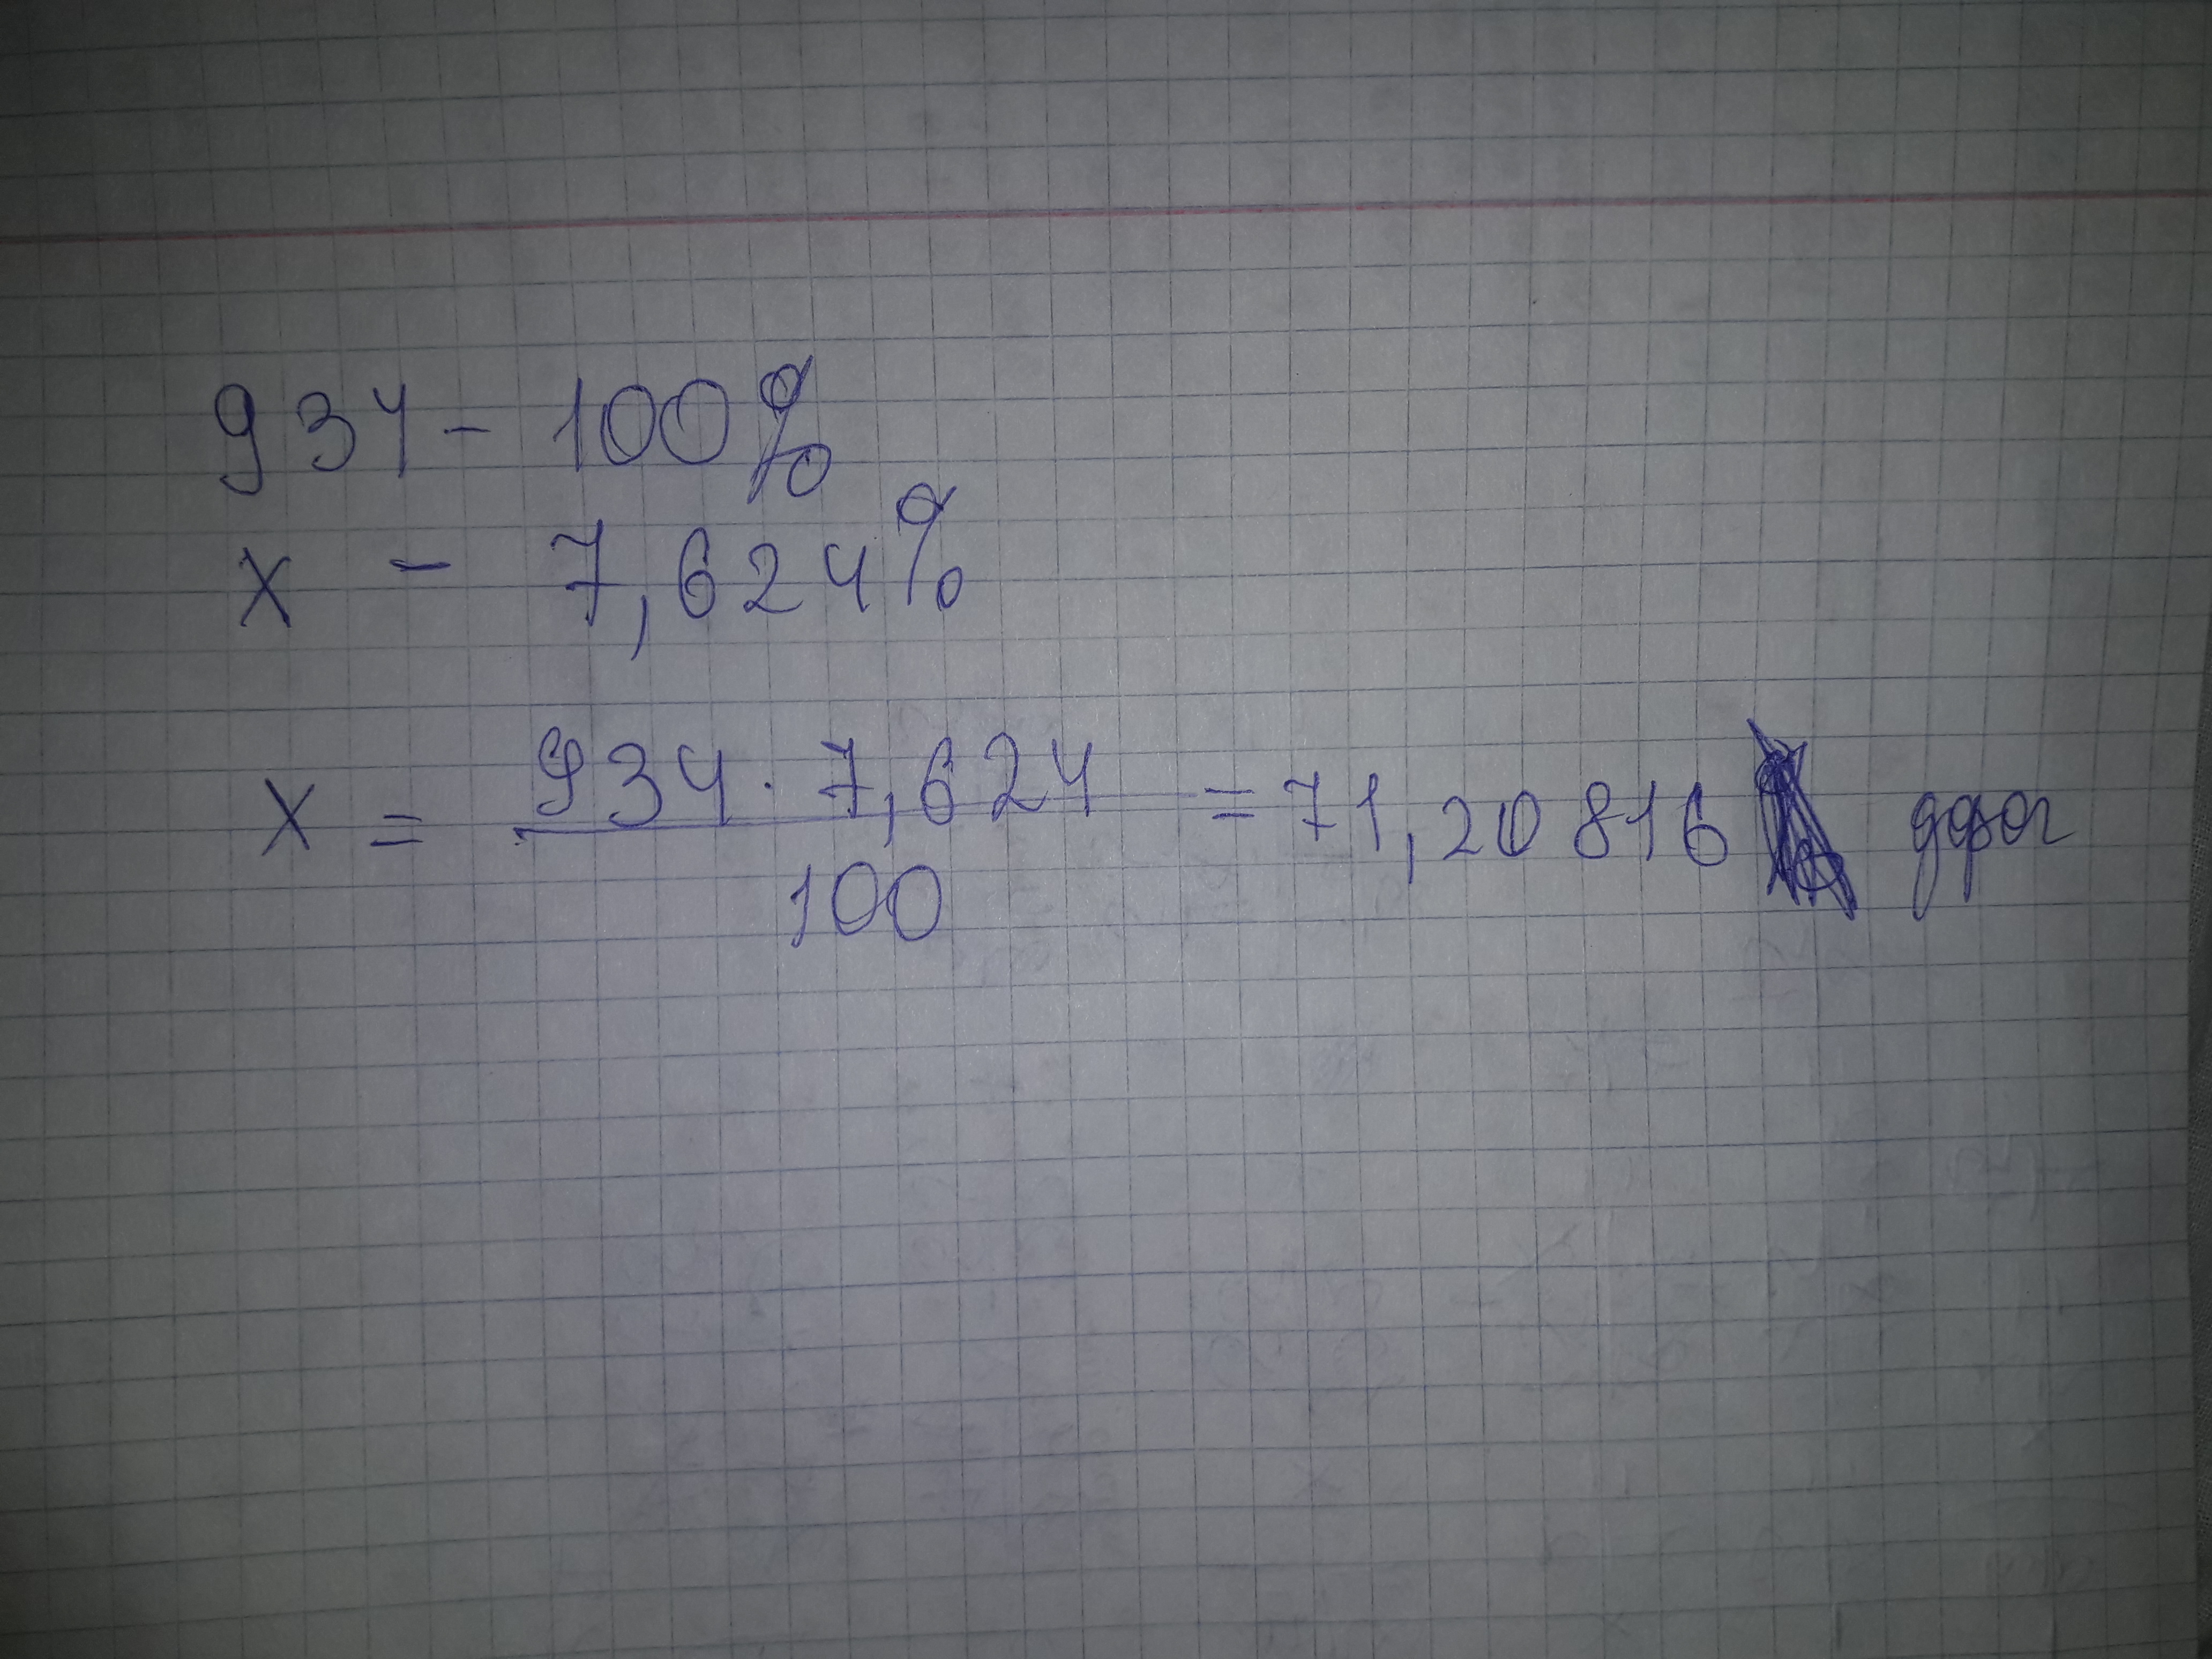 934 - 100%
x - 7,624%
x = 934 · 7,624 / 100 = 71,20816